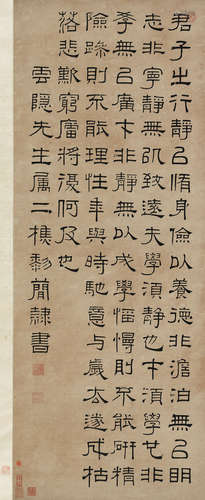 君子之行靜㠯脩身儉以養德非澹泊無㠯明
志非寧靜無㠯致遂夫學須靜也才須學也非
學無㠯廣才非靜無以成學慆慢則不能研精
險躁則不能理性年與時馳意與歲去遂成枯
落悲歎窮廬將復何及也
雲隱先生属二樵黎簡隸書